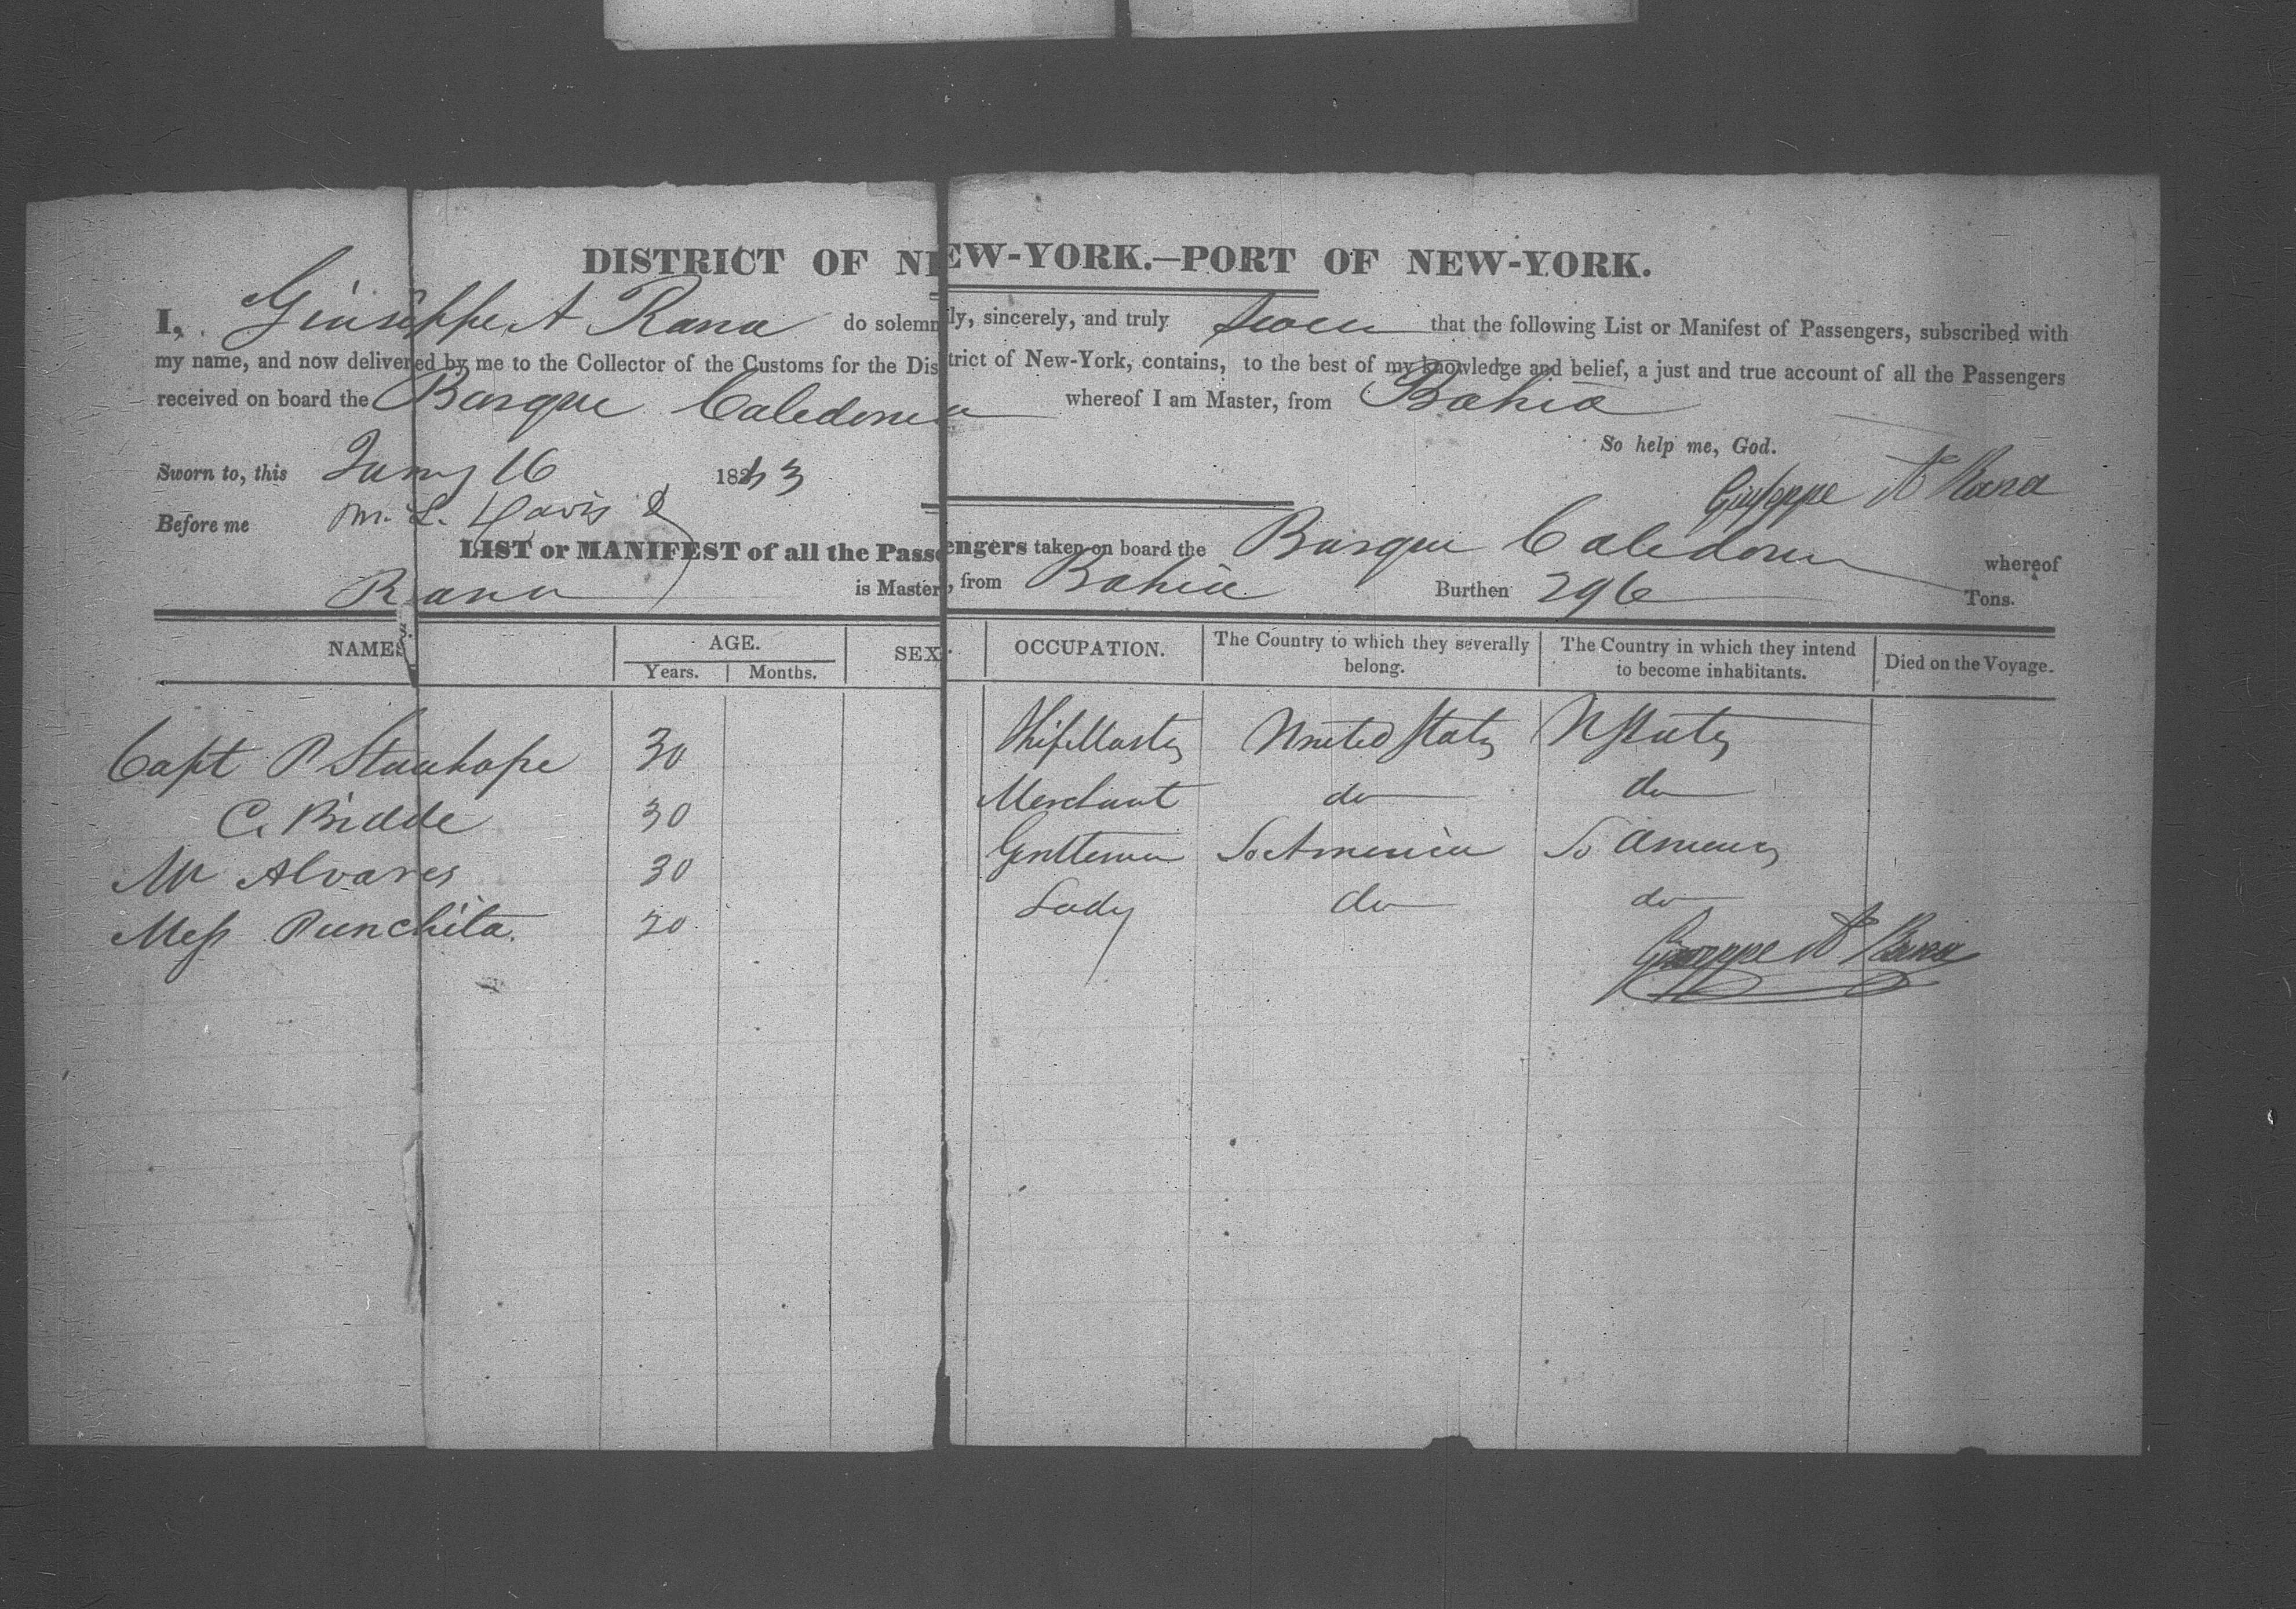 DISTRICT OF NEW-YORK.—PORT OF NEW-YORK.
I, Giuseppe A Rana do solemnly, sincerely, and truly swear that the following List or Manifest of Passengers, subscribed with
my name, and now delivered by me to the Collector of the Customs for the District of New-York, contains, to the best of my knowledge and belief, a just and true account of all the Passengers
received on board the Barque Caledonia whereof I am Master, from Bahia
So help me, God.
Sworn to, this Jany 16 1843 Giuseppe A Rana
Before me M. L. Davis
LIST or MANIFEST of all the Passengers taken on board the Barque Caledonia whereof
Rana is Master, from Bahia Burthen 296 Tons.
NAMES. AGE. SEX. OCCUPATION. The Country to which they severally belong. The Country in which they intend to become inhabitants. Died on the Voyage.
Years. Months.
Capt P Stanhope 30 ShipMaster United States U States
C. Bidde 30 Merchant do do
Mr Alvares 30 Gentleman So America So America
Mess Punchita. 20 Lady do do
Giuseppe A Rana